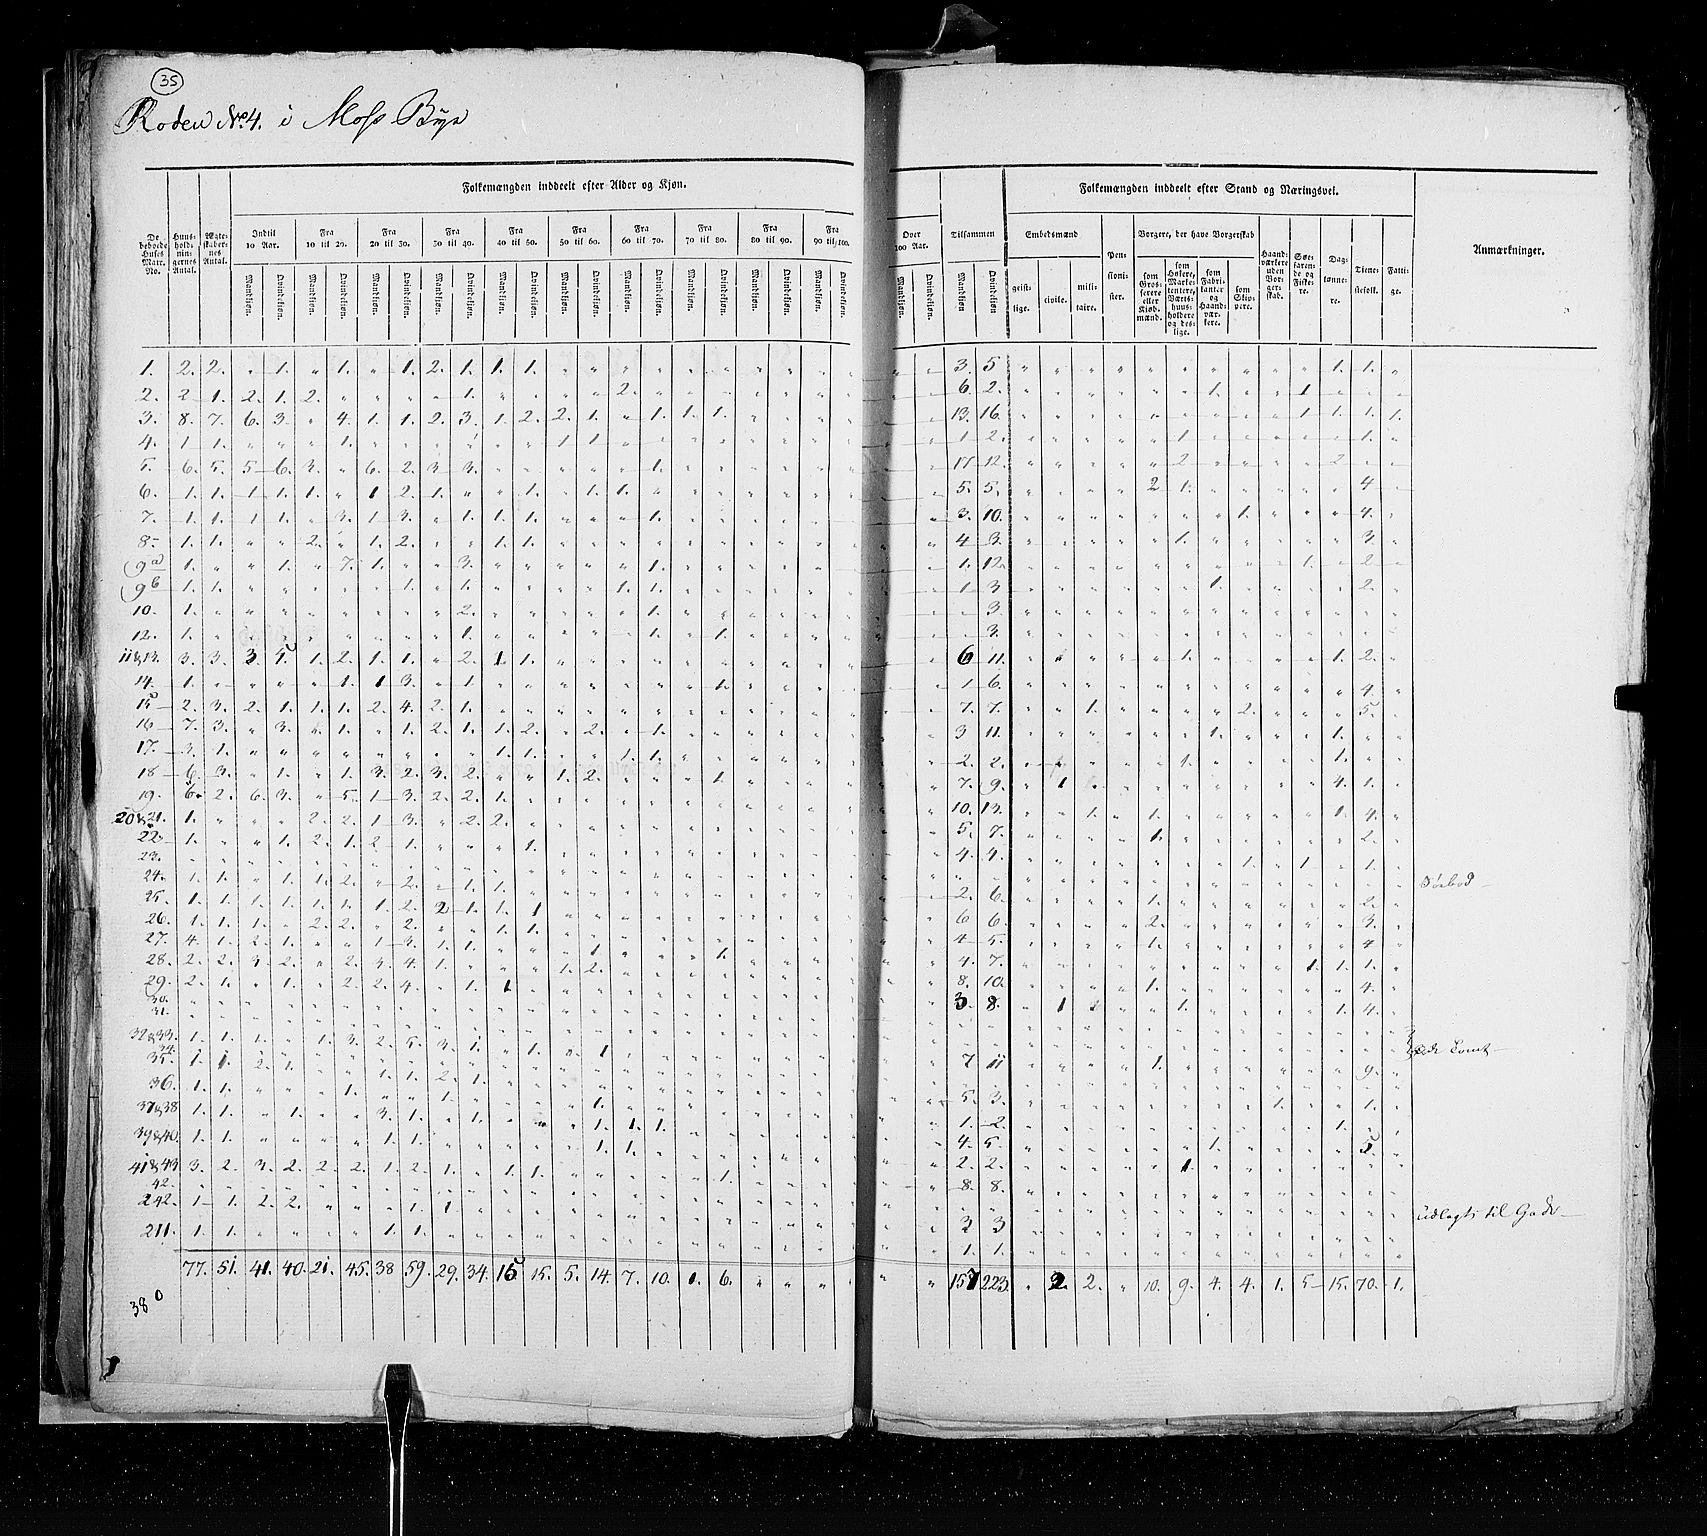 35
Roden No. 4. i Moss Bye
Folkemængden inddeelt efter Alder og Kjøn.
Folkemængden inddeelt efter Stand og Næringsvei.
De beboede Huses Matr. No.
Huusholdningernes Antal.
Ægteskabernes Antal.
Indtil 10 Aar.
Fra 10 til 20.
Fra 20 til 30.
Fra 30 til 40.
Fra 40 til 50.
Fra 50 til 60.
Fra 60 til 70.
Fra 70 til 80.
Fra 80 til 90.
Fra 90 til 100.
Over 100 Aar.
Tilsammen
Mandkjøn. Qvindekjøn.
Embedsmænd
geistlige. civile. militaire.
Pensionister.
Borgere, der have Borgerskab
som Grosserere eller Kjøbmænd.
som Høkere, Marketentere, Værtshuusholdere og deslige.
som Fabrikanter og Haandværkere.
som Skippere.
Haandværkere uden Borgerskab.
Søefarende og Fiskere.
Daglønnere.
Tienestefolk.
Fattige.
Anmærkninger.
1. 2. 2. " 1. " 1. " 1. 2. 1. 1. 1. 3. 5 1. 1.
2. 2 1. 2. 1. 2. 1. 2. 6. 2. 1. 1
3. 8. 7. 6. 3. " 4. 1. 1. 2. 3. 1. 2. 2. 1. " 1. 1. 1. 13. 16. 1. 1. 1. 1.
4. 1. 1. 1. 1 1. 1 2. 1. 1.
5. 6. 5. 5 6. 3. " 6. 2. 3. 3. 1. 17 12. 2 2
6. 1. 1. 1. 1. 1. " 1 2. 1. 1. 1. 1. 5. 5. 2 1. 4
7. 1. 1. 1. 1. " 3. 1. 3. " 1. 1. 1. 1. 3. 10. 1. 4.
8. 1. 1. 2. 1. 2. 1. 1. 4 3. 1. 3.
9a 1. 1. " 7. 1. 3. 1. 1. 12. 1. 2
9b 1. 1. 1. 1. 1. 1. 1 3 1. 2.
10. 1. 2. 1. 3.
12. 1. 1. 1. 1. 3.
11 & 13. 3. 3. 1. 2. 1. 1. " 2. 1. 1. 6 11. 1. 1. 2.
14. 1. 1. 1 3. " 1. 1. 1 6. 4.
15 2. 3. 2. 1. 1. 1. 2. 4. 2. 1. 7. 7. 1. 2. 5.
16 7. 3. " 3. " 1. " 1. 2. 1. 1. 2. " 2. " 1. 3 11. 1. 1.
17. 3. 1. 1. 1. 1. 1. 2. 2. 1. 1.
18 6. 3. " 1. " 1. 3. 2. 3. 2. 1. 2. 1. 7. 9. 1 4. 1.
19. 6. 2. 6. 3. " 5. 1 3. 2. 2. 1. 10. 13. 1. 1. 1. 4.
20 & 21. 1. 2. 2. 1 3. " 2. 2. 5. 7. 1. 2.
22. 1. 1. 2. 1. 2. 1. 1. 4. 4. 1. 1 1.
23. Søebod
24. 1. 1. " 1. 1. 2. " 2. " 1. 1. 2. 6. 2.
25. 1. 1. 1. 1. 1. 1. 1. 2. 2 1. 1. 1 6 6. 2. 3.
26. 1. 1. 1. " 2. 2. " 2. 1. 1. 4 5. 1. 4
27. 4. 1. 2. 1. 1 3. 1. 1. 1 1. 4. 7. 1. 1. 1.
28. 2. 2. 3. 2. " 2. 3. 4. 1. 1. 2. 8. 10. 1. 4.
29. 2. 1. " 1. " 2. 2. 4. " 1. 1. 3 8. 1 1. 1. 4.
30.
31.
32 & 33. 1. 1. 1. " 1. 3. 2. 5. 3. 1. " 1. 1 7 11 1. 9.
34.
35. 1. 1. 2. 1. 1. 1. 2. 1. 5. 3. 1. 1.
36. 1. 1. 1. 1. 1. 1. 2. 1.
37 & 38 1. 1. " 1. 3. 1. 1. 1. 1. 1. 4. 5. 1.
39 & 40. 1. 1. 1. 1. 1. 1. 2. 2. 1.
41 & 43 3. 2. 3. 2. 2. 2. 1. 2. 1. " 1. 1. 1. 8. 8.
42. udlagts til Gade
242. 1 1. 2. 2. 1. 1 3 3
211. 1. 1. 1. 1. 1. 1.
77. 51. 41. 40. 21. 45. 38 59. 29. 34. 15 15. 5. 14. 7. 10. 1. 6. " " " " " 157 223. " 2. 2. " 10. 9. 4. 4. 1. 5 15. 70. 1.
380